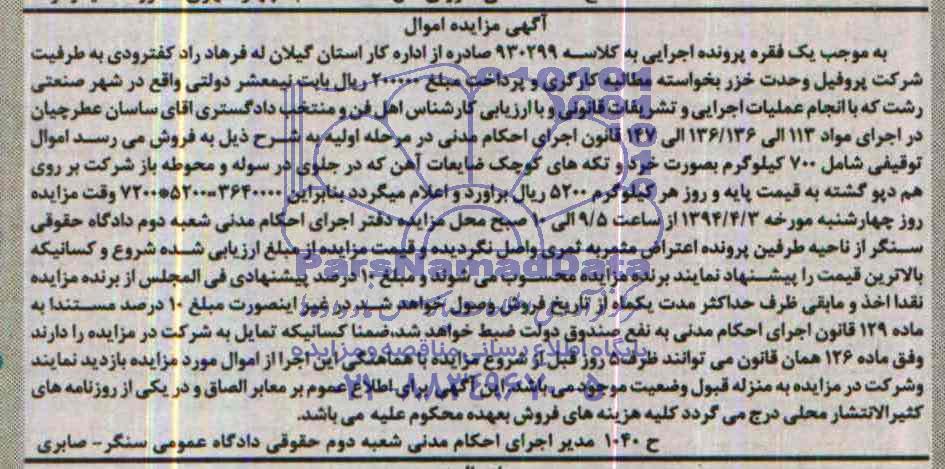 آگهی مزایده اموال
به موجب یک فقره پرونده اجرایی به کلاسه ۹۳۰۲۹۹ صادره از اداره کار استان گیلان له فرهاد راد کفترودی به طرفیت
شرکت پروفیل وحدت خزر بخواسته مطالبه کارگری و پرداخت مبلغ ۲۰۰۰۰۰ ریال بابت نیمعشر دولتی واقع در شهر صنعتی
رشت که با انجام عملیات اجرایی و تشریفات قانونی و با ارزیابی کارشناس اهل فن و منتخب دادگستری اقای ساسان عطرچیان
در اجرای مواد ۱۱۳ الی ۱۳۶/۱۳۶ الی ۱۴۷ قانون اجرای احکام مدنی در مرحله اولیه به شرح ذیل به فروش می رسد اموال
توقیفی شامل ۷۰۰ کیلوگرم بصورت خرد و تکه های کوچک ضایعات آهن که در جلوی در سوله و محوطه باز شرکت بر روی
هم دپو گشته به قیمت پایه و روز هر کیلوگرم ۵۲۰۰ ریال براورد و اعلام میگردد بنابراین ۳۶۴۰۰۰۰=۵۲۰۰*۷۲۰۰ وقت مزایده
روز چهارشنبه مورخه ۱۳۹۴/۴/۳ از ساعت ۹/۵ الی ۱۰ صبح محل مزایده دفتر اجرای احکام مدنی شعبه دوم دادگاه حقوقی
سنگر از ناحیه طرفین پرونده اعتراض مثمر به ثمری واصل نگردیده و قیمت مزایده از مبلغ ارزیابی شده شروع و کسانیکه
بالاترین قیمت را پیشنهاد نمایند برنده مزایده محسوب می شوند و مبلغ ۱۰ درصد پیشنهادی فی المجلس از برنده مزایده
نقدا اخذ و مابقی ظرف حداکثر مدت یکماه از تاریخ فروش وصول خواهد شد در غیر اینصورت مبلغ ۱۰ درصد مستندا به
ماده ۱۲۹ قانون اجرای احکام مدنی به نفع صندوق دولت ضبط خواهد شد،ضمنا کسانیکه تمایل به شرکت در مزایده را دارند
وفق ماده ۱۲۶ همان قانون می توانند ظرف ۵ روز قبل از شروع مزایده با هماهنگی این اجرا از اموال مورد مزایده بازدید نمایند
وشرکت در مزایده به منزله قبول وضعیت موجود می باشد،این آگهی برای اطلاع عموم بر معابر الصاق و در یکی از روزنامه های
کثیرالانتشار محلی درج می گردد کلیه هزینه های فروش بعهده محکوم علیه می باشد.
ح ۱۰۴۰ مدیر اجرای احکام مدنی شعبه دوم حقوقی دادگاه عمومی سنگر- صابری
ParsNamadData
پایگاه اطلاع رسانی مناقصه و مزایده
۰۲۱-۸۸۳۴۹۶۷۰-۵